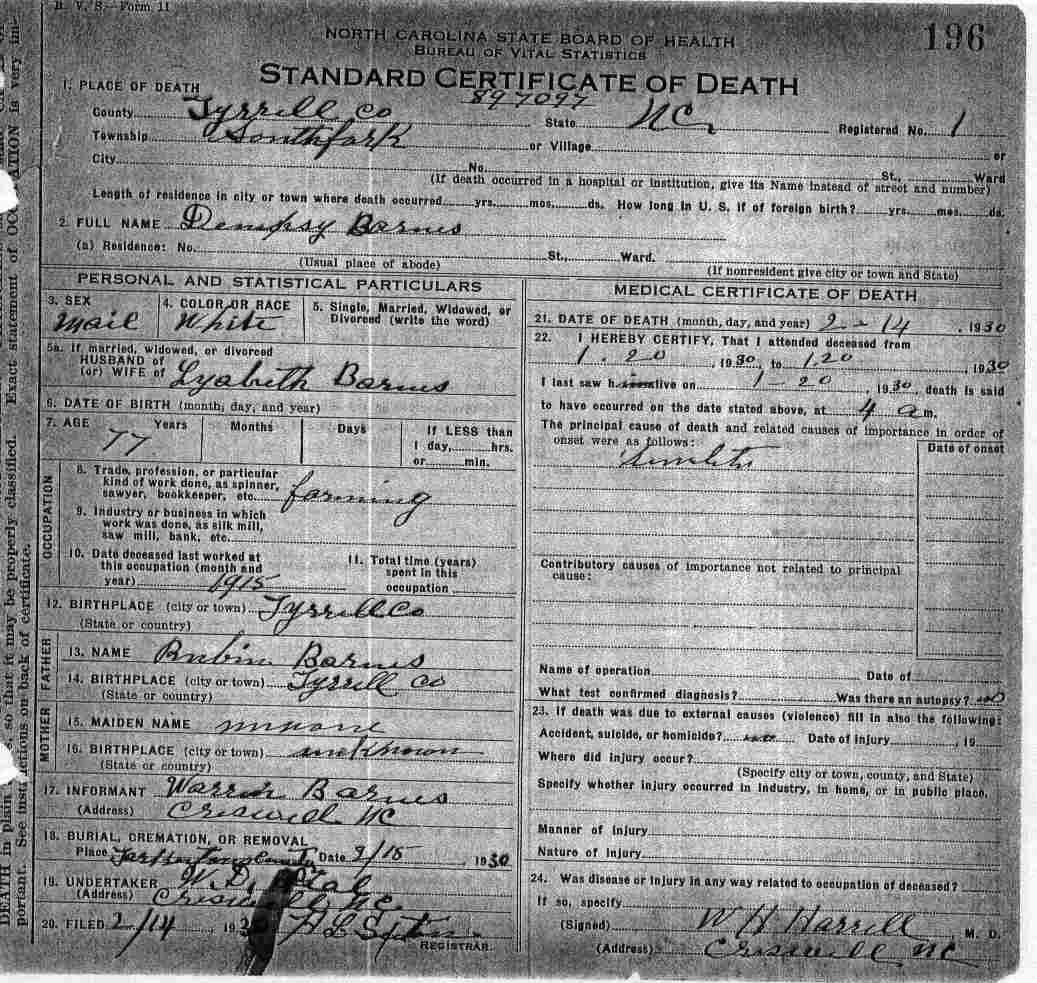 B. V. S.—Form 11
196
NORTH CAROLINA STATE BOARD OF HEALTH
BUREAU OF VITAL STATISTICS
STANDARD CERTIFICATE OF DEATH
897097
1. PLACE OF DEATH
County Tyrrell Co State NC. Registered No. 1
Township Southfork or Village or
City No. St., Ward
(If death occurred in a hospital or institution, give its Name instead of street and number)
Length of residence in city or town where death occurred yrs. mos. ds. How long in U. S. if of foreign birth? yrs. mos. ds.
2. FULL NAME Dempsy Barnes
(a) Residence: No. St., Ward.
(Usual place of abode) (If nonresident give city or town and State)
PERSONAL AND STATISTICAL PARTICULARS
3. SEX 4. COLOR OR RACE 5. Single, Married, Widowed, or
Divorced (write the word)
Mail White
5a. If married, widowed, or divorced
HUSBAND of
(or) WIFE of Lyabeth Barnes
6. DATE OF BIRTH (month, day, and year)
7. AGE Years Months Days If LESS than
77 1 day, hrs.
or min.
OCCUPATION
8. Trade, profession, or particular
kind of work done, as spinner,
sawyer, bookkeeper, etc. farming
9. Industry or business in which
work was done, as silk mill,
saw mill, bank, etc.
10. Date deceased last worked at
this occupation (month and
year) 1915
11. Total time (years)
spent in this
occupation
12. BIRTHPLACE (city or town) Tyrrell Co
(State or country)
FATHER
13. NAME Rubin Barnes
14. BIRTHPLACE (city or town) Tyrrell Co
(State or country)
MOTHER
15. MAIDEN NAME
16. BIRTHPLACE (city or town) unknown
(State or country)
17. INFORMANT Warrin Barnes
(Address) Creswell NC
18. BURIAL, CREMATION, OR REMOVAL
Place Date 2/15, 1930
19. UNDERTAKER W. D.
(Address) Creswell, N.C.
20. FILED 2/14, 19
REGISTRAR.
MEDICAL CERTIFICATE OF DEATH
21. DATE OF DEATH (month, day, and year) 2-14, 1930
22. I HEREBY CERTIFY, That I attended deceased from
1. 20, 1930, to 1.20, 1930
I last saw h alive on 1-20, 1930, death is said
to have occurred on the date stated above, at 4 a m.
The principal cause of death and related causes of importance in order of
onset were as follows:
Date of onset
Contributory causes of importance not related to principal
cause:
Name of operation Date of
What test confirmed diagnosis? Was there an autopsy? no
23. If death was due to external causes (violence) fill in also the following:
Accident, suicide, or homicide? Date of injury, 19
Where did injury occur?
(Specify city or town, county, and State)
Specify whether injury occurred in industry, in home, or in public place.
Manner of injury
Nature of injury
24. Was disease or injury in any way related to occupation of deceased?
If so, specify
(Signed) W H Harrell, M. D.
(Address) Creswell NC
DEATH in plain so that it may be properly classified. Exact statement of OCCUPATION is very im-
portant. See instructions on back of certificate.